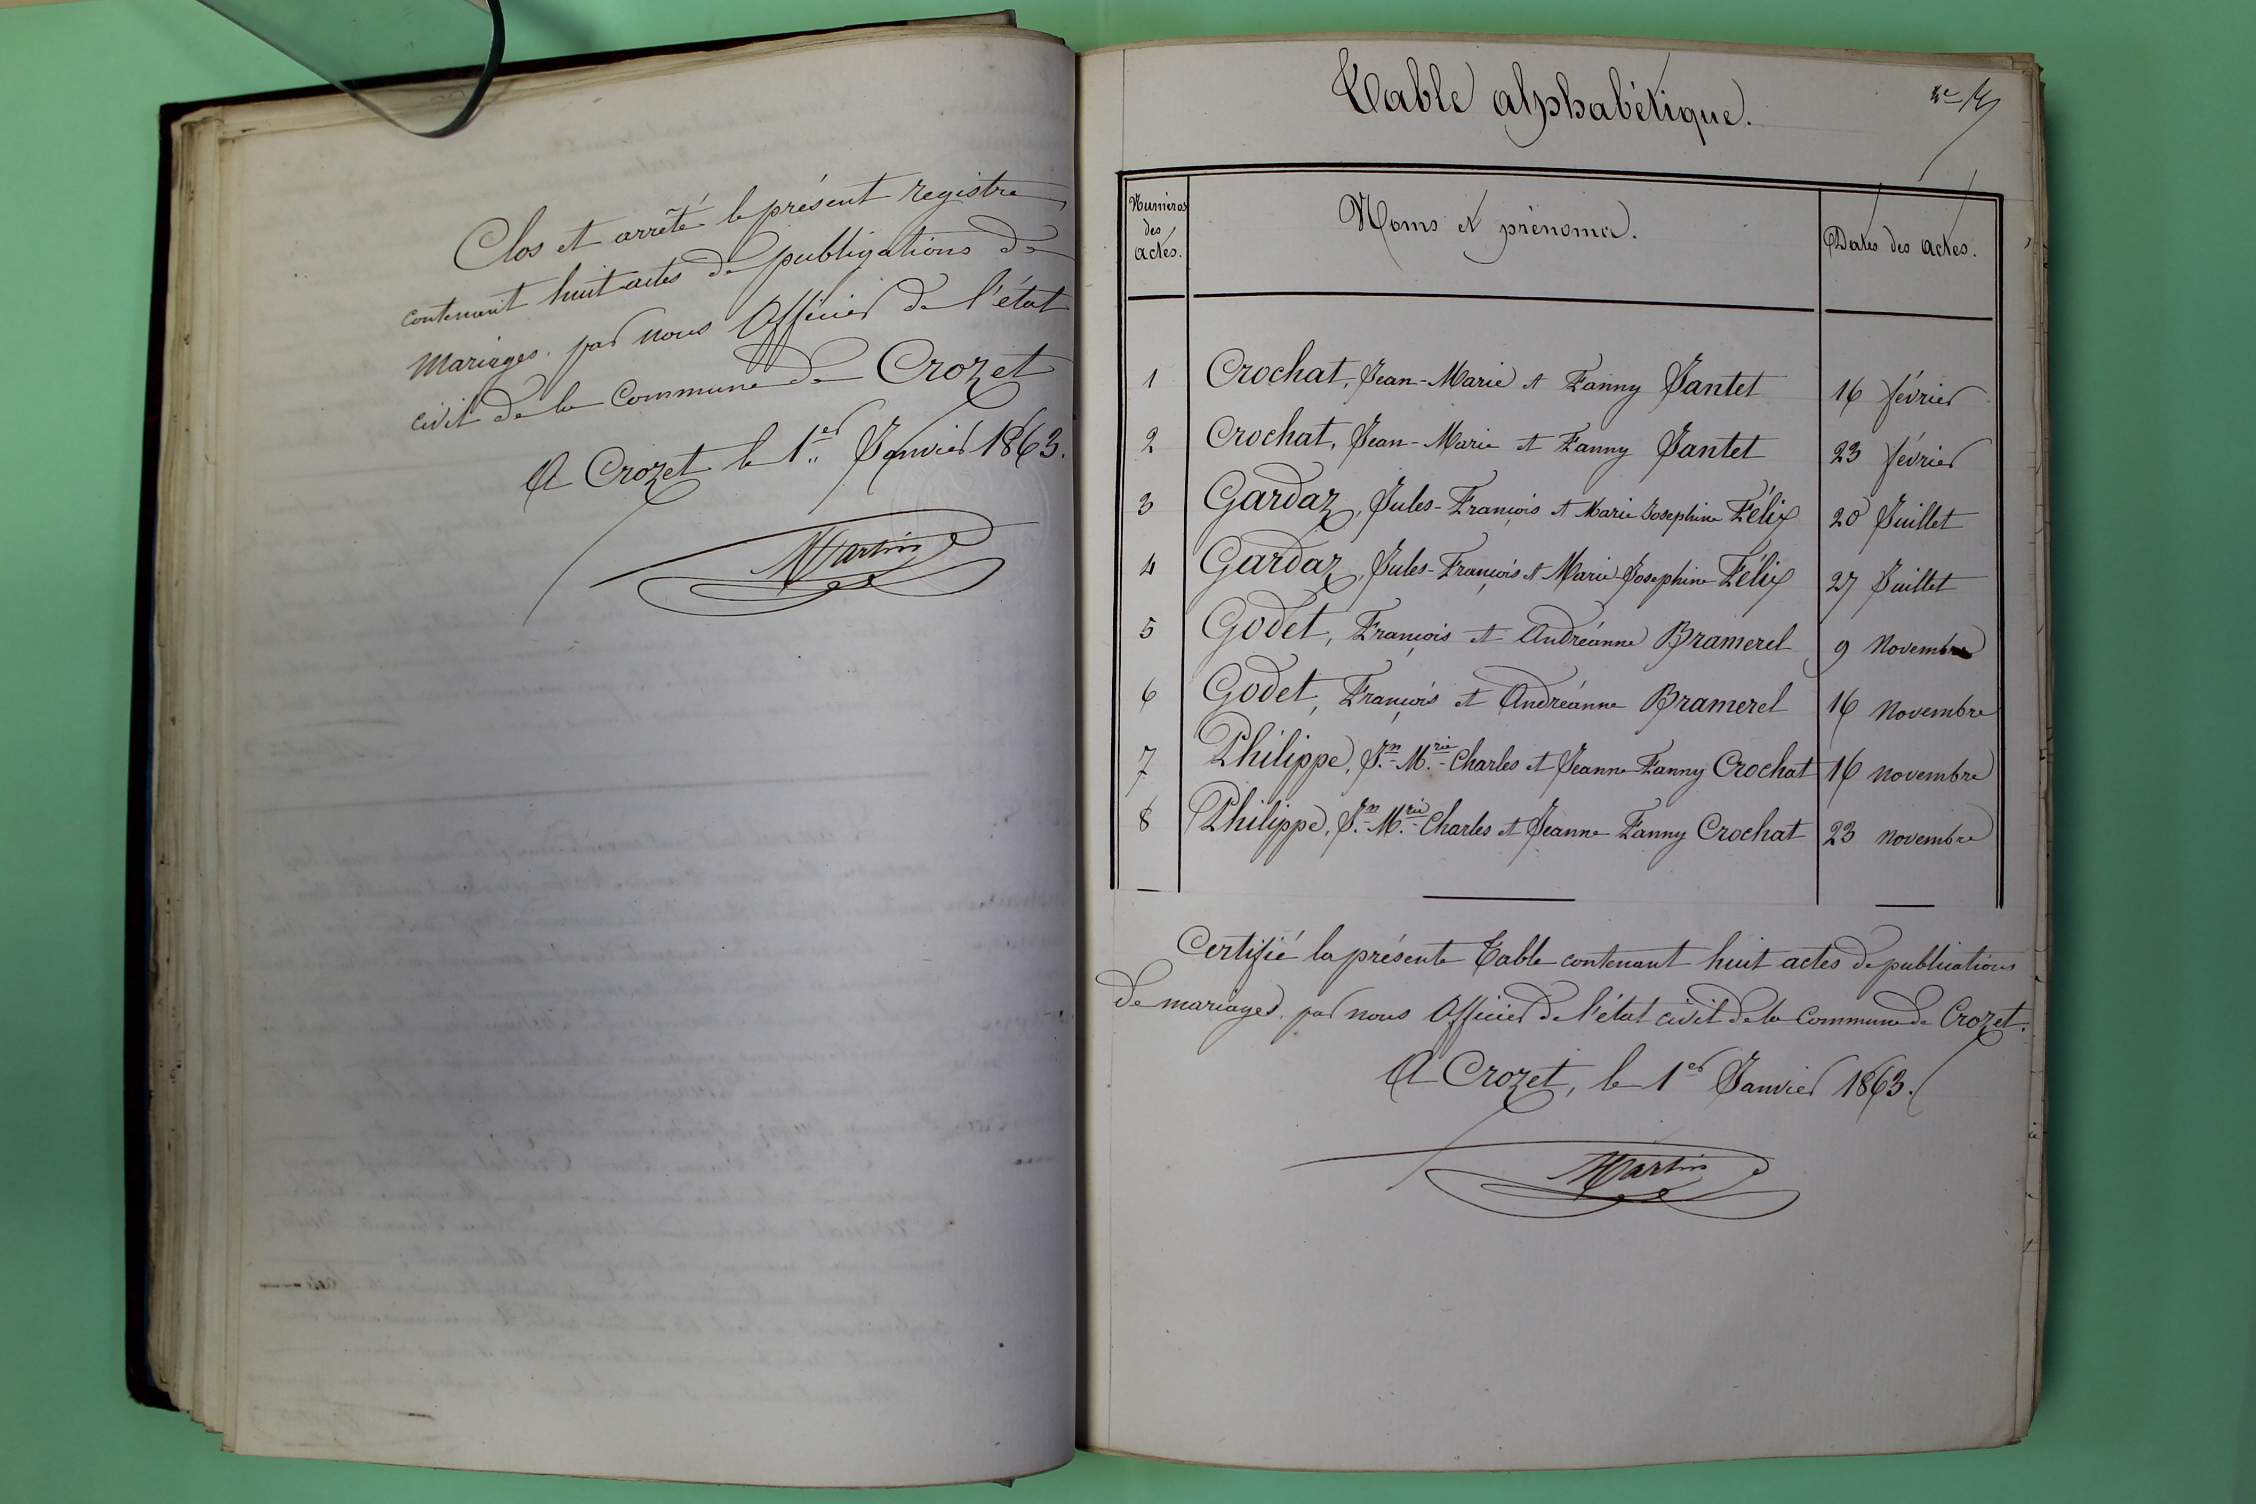 Clos et arrêté le présent registre
contenant huit actes de publications de
mariages. par nous Officier de l'état
civil de la Commune de Crozet
A Crozet le 1er Janvier 1863.
Martin
Table alphabétique.
Numéros des actes.
Noms et prénoms.
Dates des actes.
1 Crochat, Jean-Marie et Fanny Jantet 16 février
2 Crochat, Jean-Marie et Fanny Jantet 23 février
3 Gardaz, Jules-François et Marie Josephine Félix 20 Juillet
4 Gardaz, Jules-François et Marie Josephine Félix 27 Juillet
5 Godet, François et Andréanne Bramerel 9 Novembre
6 Godet, François et Andréanne Bramerel 16 Novembre
7 Philippe, Jn. Mrie. Charles et Jeanne Fanny Crochat 16 novembre
8 Philippe, Jn. Mrie. Charles et Jeanne Fanny Crochat 23 novembre
Certifié la présente Table contenant huit actes de publications
de mariages. par nous Officier de l'état civil de la Commune de Crozet.
A Crozet, le 1er Janvier 1863.
Martin